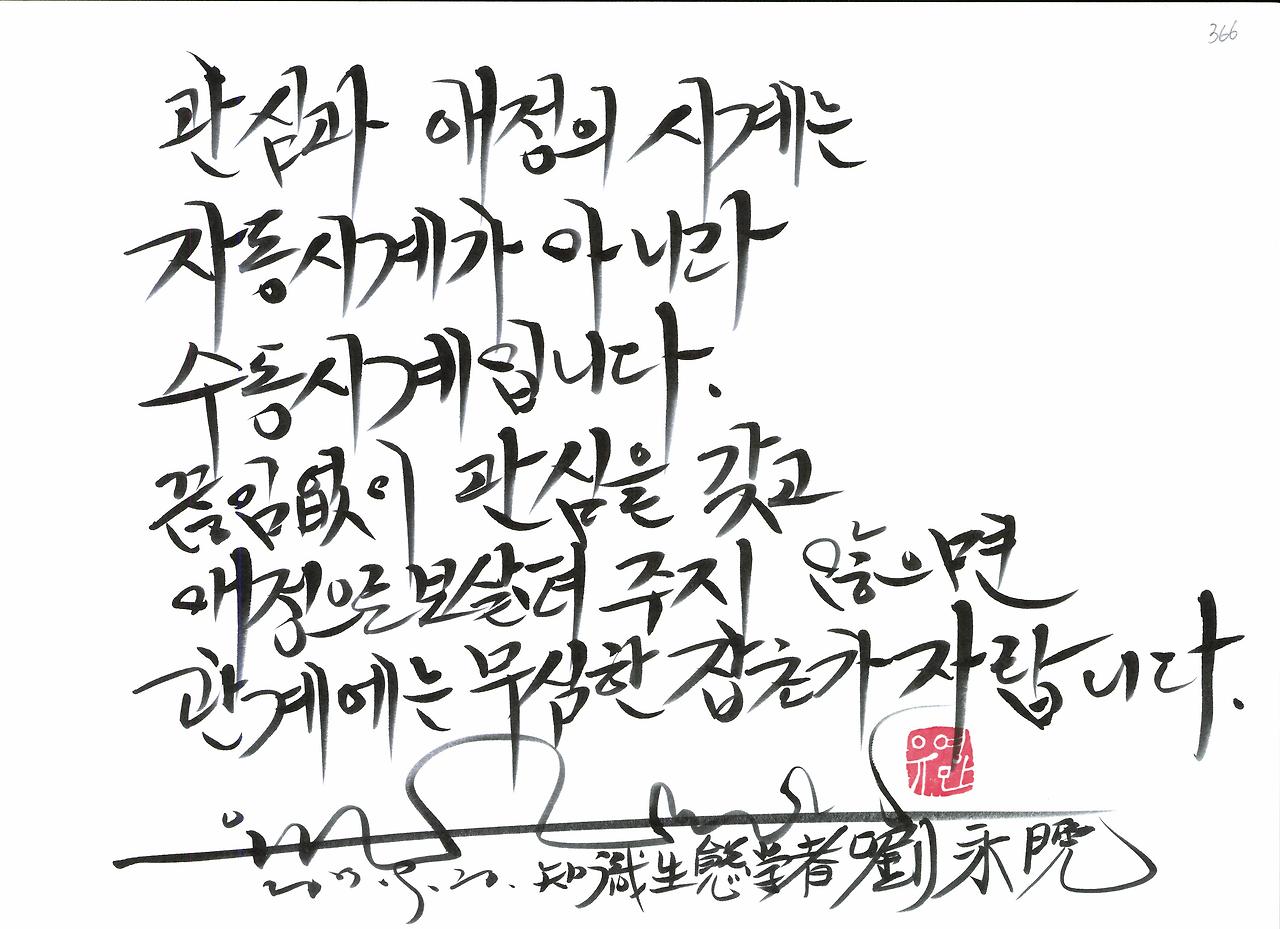 366
관심과 애정의 시계는
자동시계가 아니라
수동시계입니다.
끊임없이 관심을 갖고
애정으로 보살펴 주지 않으면
관계에는 무심한 잡초가 자랍니다.
유영만
知識生態学者 劉永晩